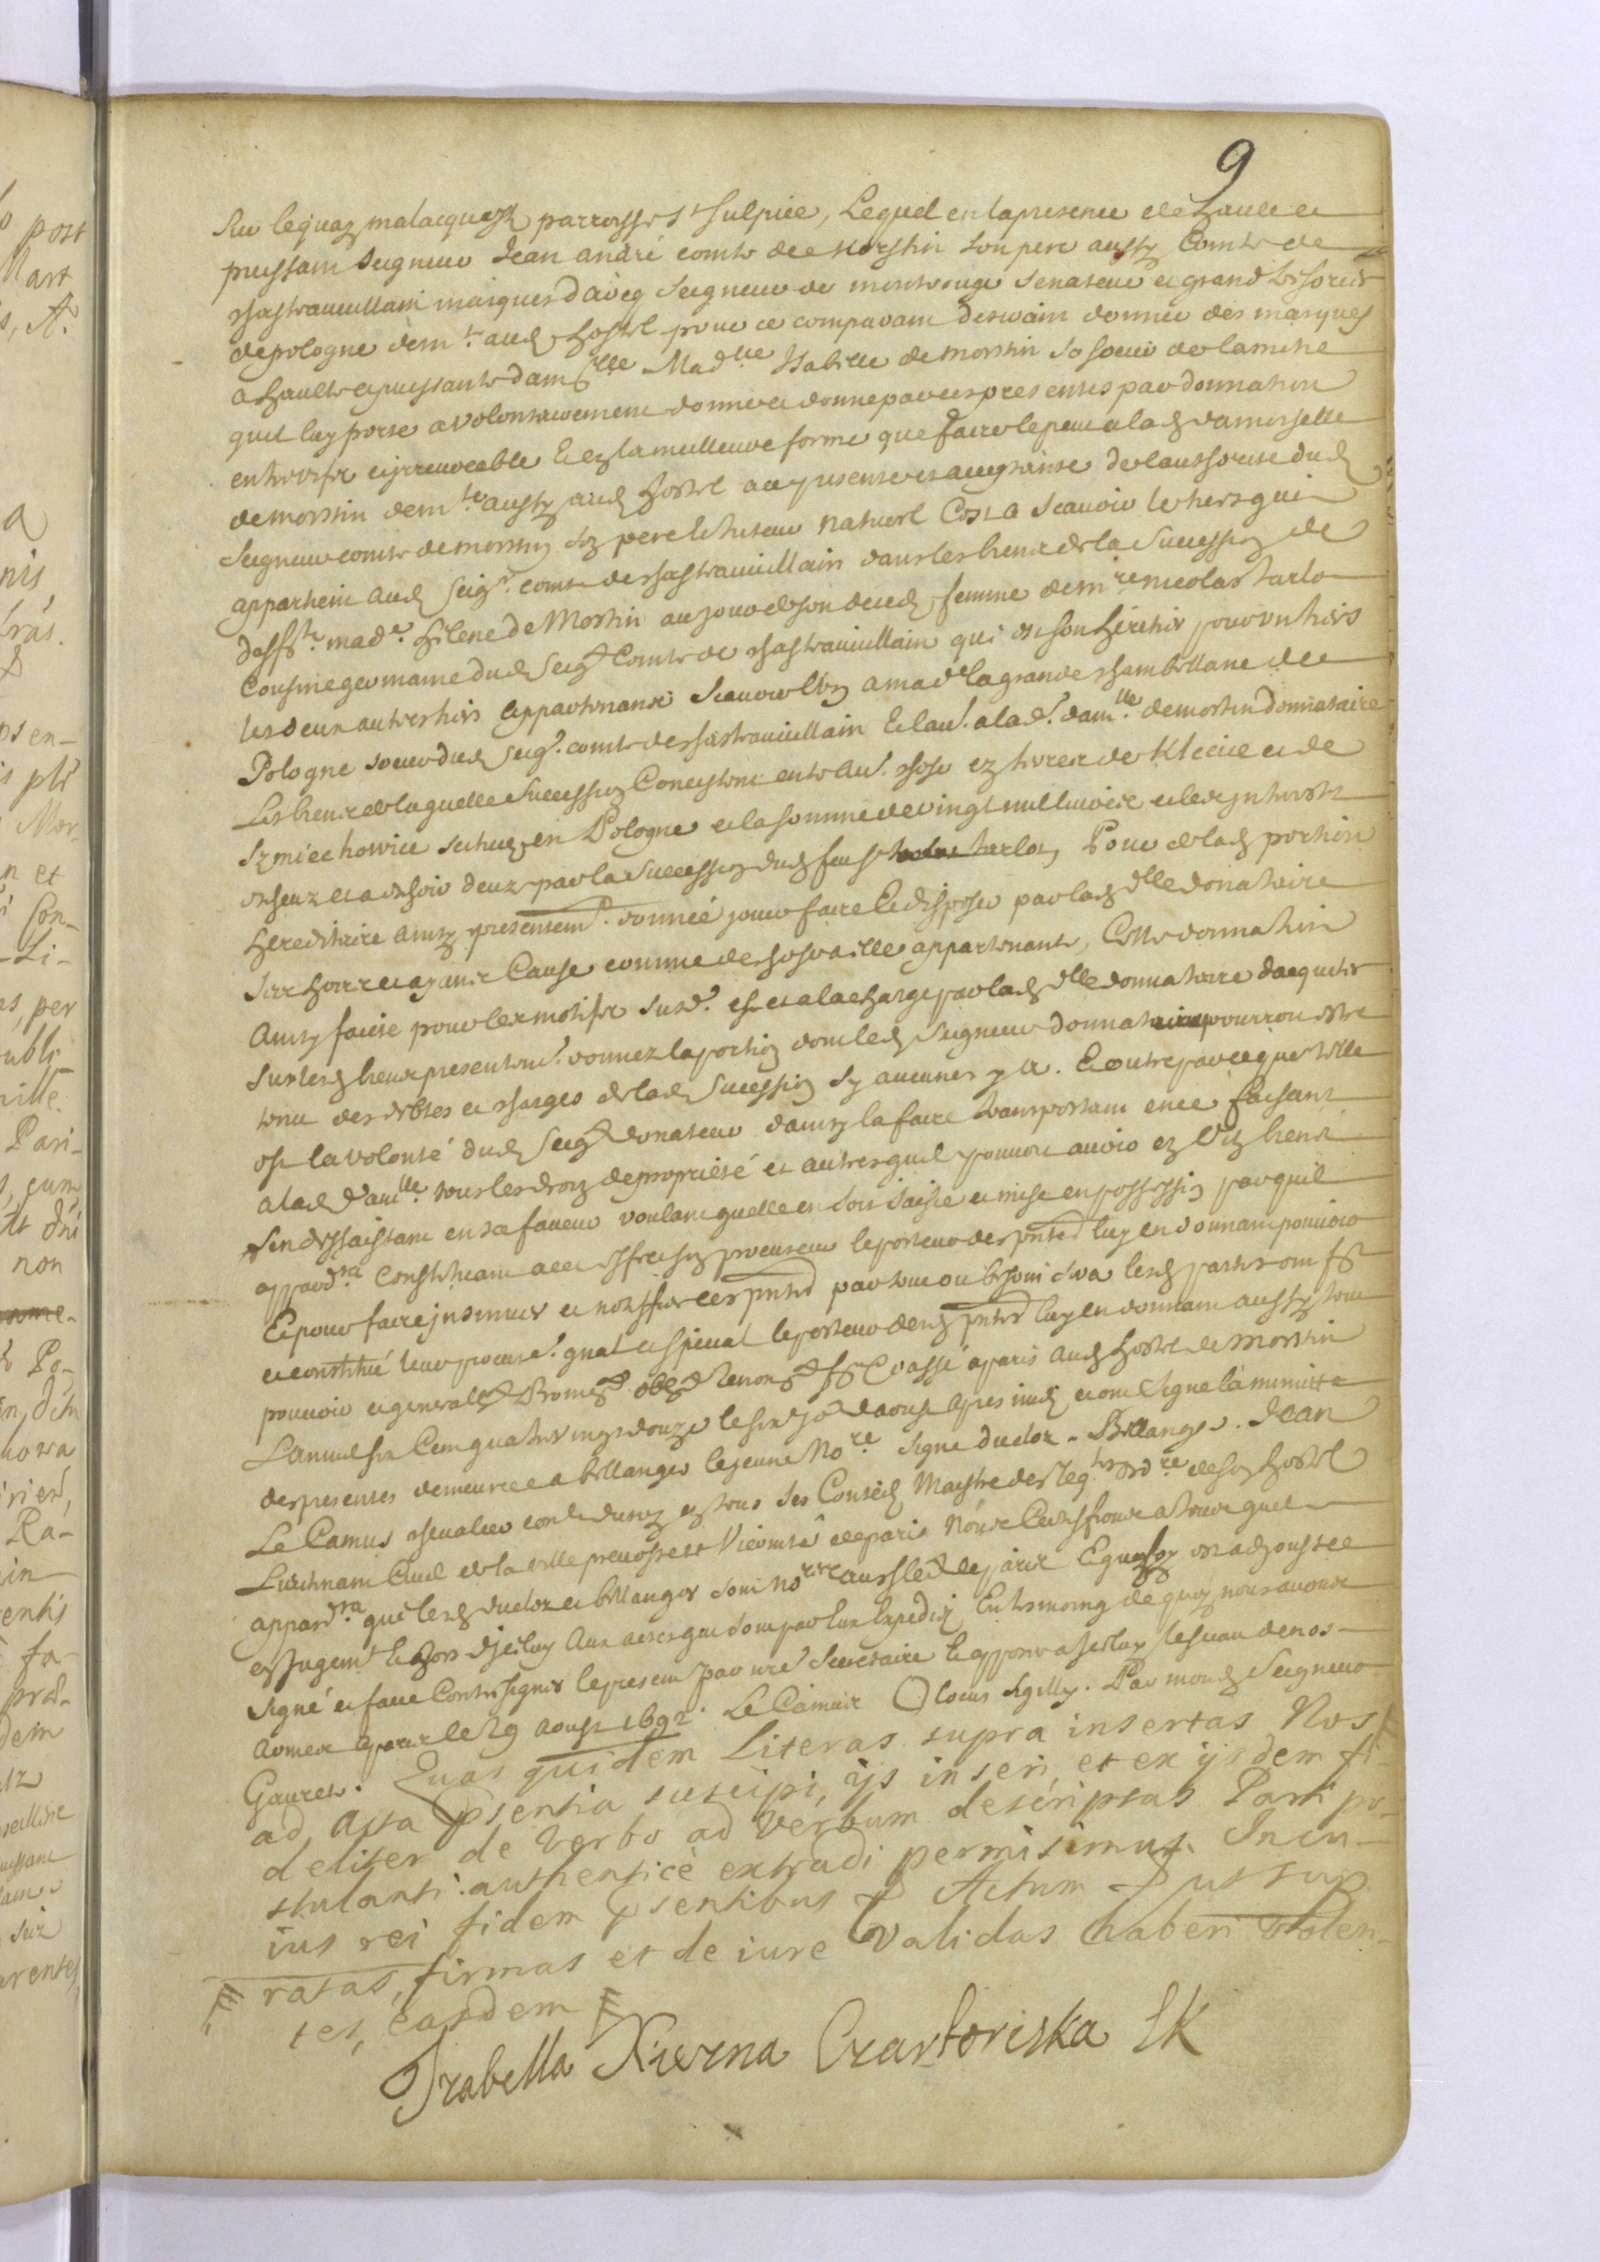 9
Sur le quaz malacquaz parroisse St Sulpice, Lequel en la presence de hault et
puissant Seigneur Jean andré comte de Morstin son pere aussy Comte de
chastauvillain marquis d'arcq Seigneur de montrouge Senateur et grand tresorier
de pologne dem.t aud hostel pour ce comparant desirant donner des marques
a haulte et puissante dam.lle Mad.lle Isabelle de morstin sa soeur de lamitié
quil luy porte a volontairement donné et donne par ces presentes par donnation
entrevifs et irrevocable et en la meilleure forme que faire le peut a lad damoiselle
de morstin dem.te aussy aud hostel ace presente et acceptante de lauthorité dud
Seigneur comte de morstin son pere et tuteur naturel Cest a Scavoir le tiers qui
appartient aud Seig.r comte de chastauvillain dans les biens de la Succession de
deff.te mad.e Helene de Morstin au jour de son deced femme de m.re nicolas tarlo
Cousine germaine dud Seig.r Comte de chastauvillain qui est son heritier pour un tiers
les deux autres tiers appartenans Scavoir lun a mad.e la grande chambellane de
Pologne soeur dud Seig.r comte de chastauvillain Et lau.e a lad. dam.lle de morstin donnataire
Les biens de laquelle Succession Concistent entre au.e chose en terres de Kliecice et de
Szmiechowice scituez en Pologne et la somme de vingt mil livres et les interests
escheuz et a eschoir deuz par la Succession dud feu s.r tarlo, Pour de lad portion
hereditaire ainsy presentem.t donnée jouir faire et disposer par lad d.lle donataire
ses hoirs et ayans Cause comme de chose a elle appartenante, Cette donnation
Ainsy faicte pour les motifs susd. et a la charge par lad d.lle donnataire dacquiter
sur lesd biens presentem.t donnez la portion dont led Seigneur donnateur pourroit estre
tenu des debtes et charges de lad Succession Sy aucunes y a. Et outre parce que telle
est la volonté dud Seig.r donateur dainsy la faire transportant en ce faisant
a lad dam.lle tous les droits de proprieté et autres quil pouvoit avoir en lesd biens
sen dessaisissant en sa faveur voulant quelle en soit saisie et mise en possession par quil
appard.ra Constituant a cet effect son procureur le porteur des pntes luy en donnant pouvoir
Et pour faire jnsinuer et notiffier ces pntes par tout ou besoin sera lesd parties ont fait
et constitué leur procur.r gnal et special le porteur desd pntes luy en donnant aussy tout
pouvoir et generall Promet Oblig Renon fait et passé a paris aud hostel de Morstin
Lan mil six Cent quatre vingt douze le six.e jo.r daoust apres midy et ont Signé la minutte
des presentes demeuree a bellanger le jeune No.re Signé duclox. Bellanger. Jean
Le Camus chevalier con.er du roy en tous ses Conseils Maistre des Req.tes ord.re de son hostel
Lieutenant Civil de la ville prevosté et Vicomté de paris Nous Certiffions a tous quil
appard.ra que lesd duclox et bellanger sont No.res au chlet de paris Et que foy est adjoustee
en Jugem.t Et hors dicelluy Aux actes qui sont par Eux Expediez En tesmoing de quoy nous avons
Signé et faict Contresigner le present par nre Secretaire et apposer a icelluy le sceau de nos
Armes a paris le 29 Aoust 1692. Le Camus O locus Sigilly. Par mond Seigneur
Gaurets. Quas quidem Literas supra insertas Nos
ad Acta psentia suscipi, ijs inseri, et ex ijsdem fi-
deliter de Verbo ad Verbum descriptas Parti po-
stulanti authenticè extradi permisimus. In cu-
ius rei fidem psentibus Actum ut supra
ratas, firmas et de iure validas haberi Volen-
tes, easdem
Izabella Xiezna Czartoriska LK